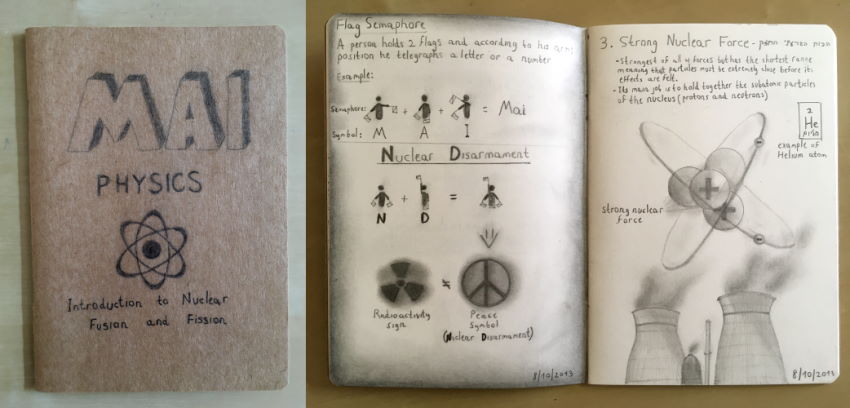 MAI
PHYSICS
Introduction to Nuclear
Fusion and Fission
Flag Semaphore
A person holds 2 flags and according to his arms
position he telegraphs a letter or a number
Example:
Semaphore: + + = Mai
Symbol: M A I
Nuclear Disarmament
+ =
N D
Radioactivity
sign
≠
Peace
Symbol
(Nuclear Disarmament)
8/10/2013
3. Strong Nuclear Force -
- Strongest of all 4 forces but has the shortest range
meaning that particles must be extremely close before its
effects are felt.
- Its main job is to hold together the subatomic particles
of the nucleus (protons and neutrons)
2
He
example of
Helium atom
strong nuclear
force
8/10/2013